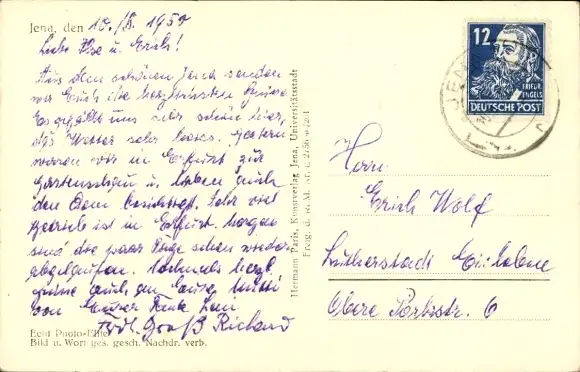 Jena, den 10./8. 1950
Liebe Ilse u. Erich!
Aus dem schönen Jena senden
wir Euch die herzlichsten Grüsse
Es gefällt uns sehr schön hier,
das Wetter sehr heiss. Gestern
waren wir in Erfurt zur
Gartenschau u. haben auch
den Dom besichtigt. Sehr viel
ist in Erfurt. Morgen
sind die paar Tage schon wieder
abgelaufen. Nochmals herzl.
Grüsse auch an Eure Mutti
von Eurer Tante
Frdl. Gruß Richard
Echt Photo-
Bild u. Wort ges. gesch. Nachdr. verb.
Hermann Paris, Kunstverlag Jena, Universitätsstade
12
FRIEDR. ENGELS
DEUTSCHE POST
JENA
Herrn
Erich Wolf
Lutherstadt Eisleben
Obere Parkstr. 6